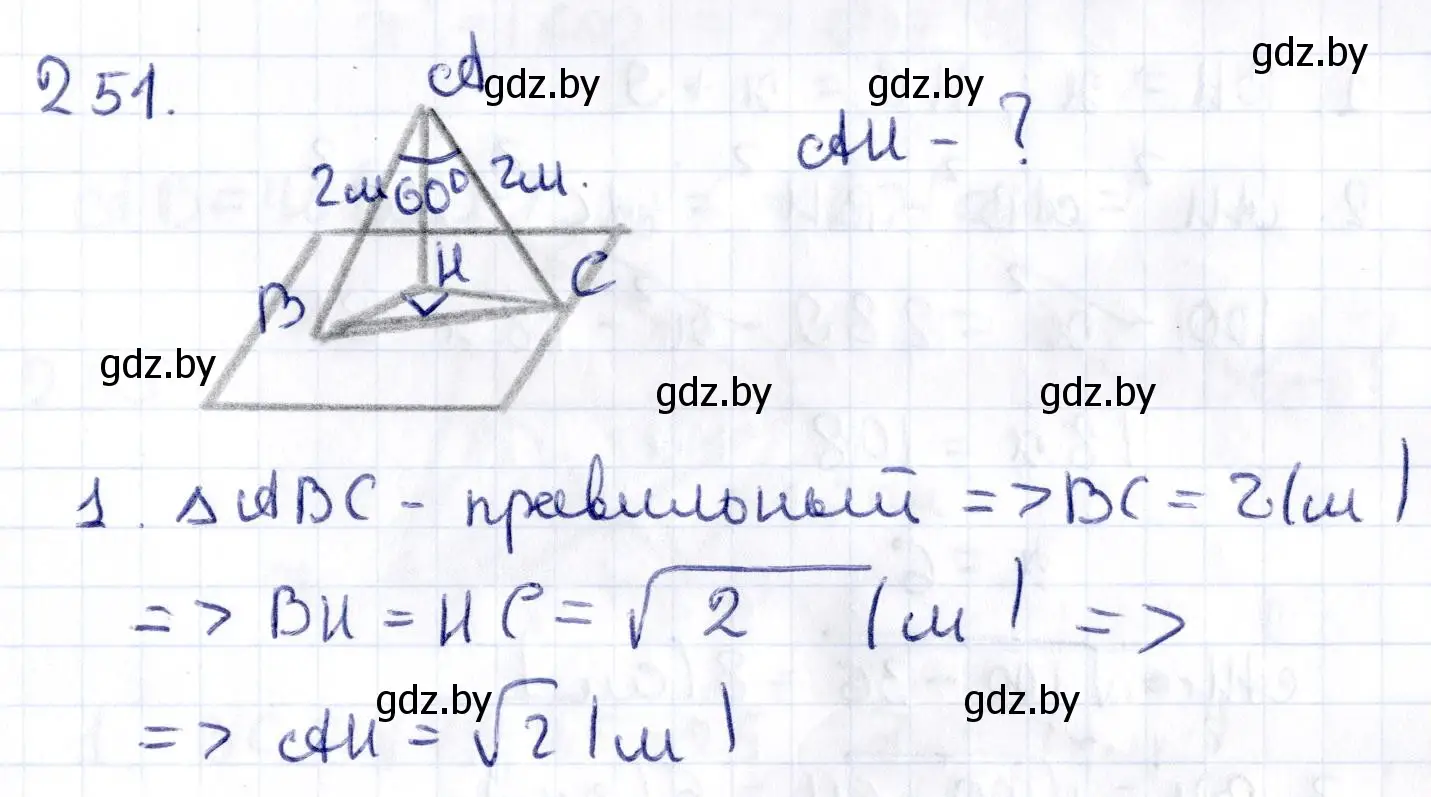 251.
A
gdz.by
gdz.by
gdz.by
AH - ?
2м 60° 2м.
H
B
C
gdz.by
gdz.by
gdz.by
1. ΔABC - правильный => BC = 2 (м)
=> BH = HC = √2 (м) =>
gdz.by
gdz.by
=> AH = √2 (м)